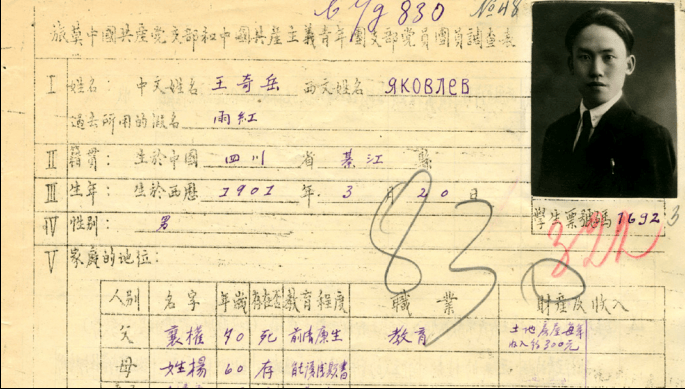 б/уд 830 № 48
旅莫中國共產党支部和中國共產主義青年團支部党員團員調查表
I 姓名: 中文姓名 王奇岳 西文姓名 Яковлев
過去所用的假名 雨紅
II 籍貫: 生於中國 四川 省 綦江 縣
III 生年: 生於西歷 1901 年 3 月 20 日
IV 性别: 男
學生票號碼 1692
322
830
V 家庭的地位:
人别 名字 年歲 存在否 教育程度 職業 財產及收入
父 襄權 70 死 前清廩生 教育 土地房產每年
收入約300元
母 姓楊 60 存